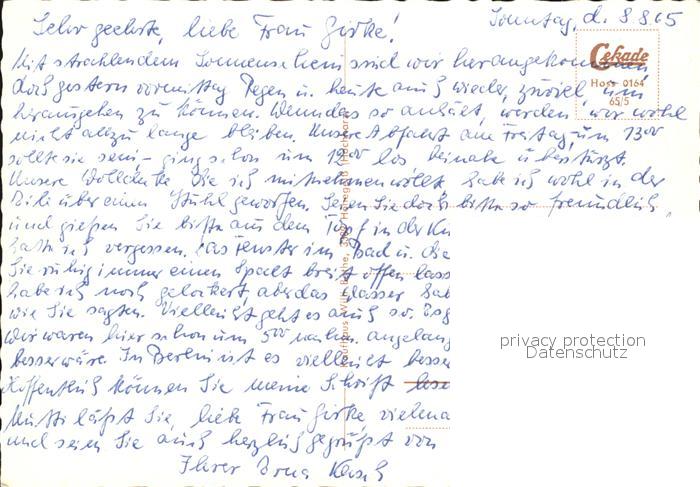 Sonntag, d. 8.8.65
Sehr geehrte, liebe Frau Girke!
Mit strahlendem Sonnenschein sind wir herangekommen
doch gestern vormittag Regen u. heute auch wieder, zuviel, um
herausgehen zu können. Wenn das so anhält, werden wir wohl
nicht allzu lange bleiben. Unsere Abfahrt am Freitag, um 13⁰⁰
sollte sie sein - ging schon um 12⁰⁰ los beinahe überstürzt.
Unsere Wolldecke die ich mitnehmen wollte, habe ich wohl in der
Eile über einen Stuhl geworfen. Seien Sie doch bitte so freundlich,
und gießen Sie bitte aus dem Topf in der Kü
hatte ich vergessen. Das Fenster im Bad u. die
Sie ruhig immer einen Spalt breit offen lass
habe ich noch gelockert, aber das Wasser hat
wie Sie sagten. Vielleicht geht es auch so. Es g
Wir waren hier schon um 5⁰⁰ nachm. angelang
besser wäre. In Berlin ist es vielleicht besser
Hoffentlich können Sie meine Schrift lese
Mutti läßt Sie, liebe Frau Girke vielma
und seien Sie auch herzlich gegrüßt von
Ihrer Erna
Cekade
Hos 0164
65/5
privacy protection
Datenschutz